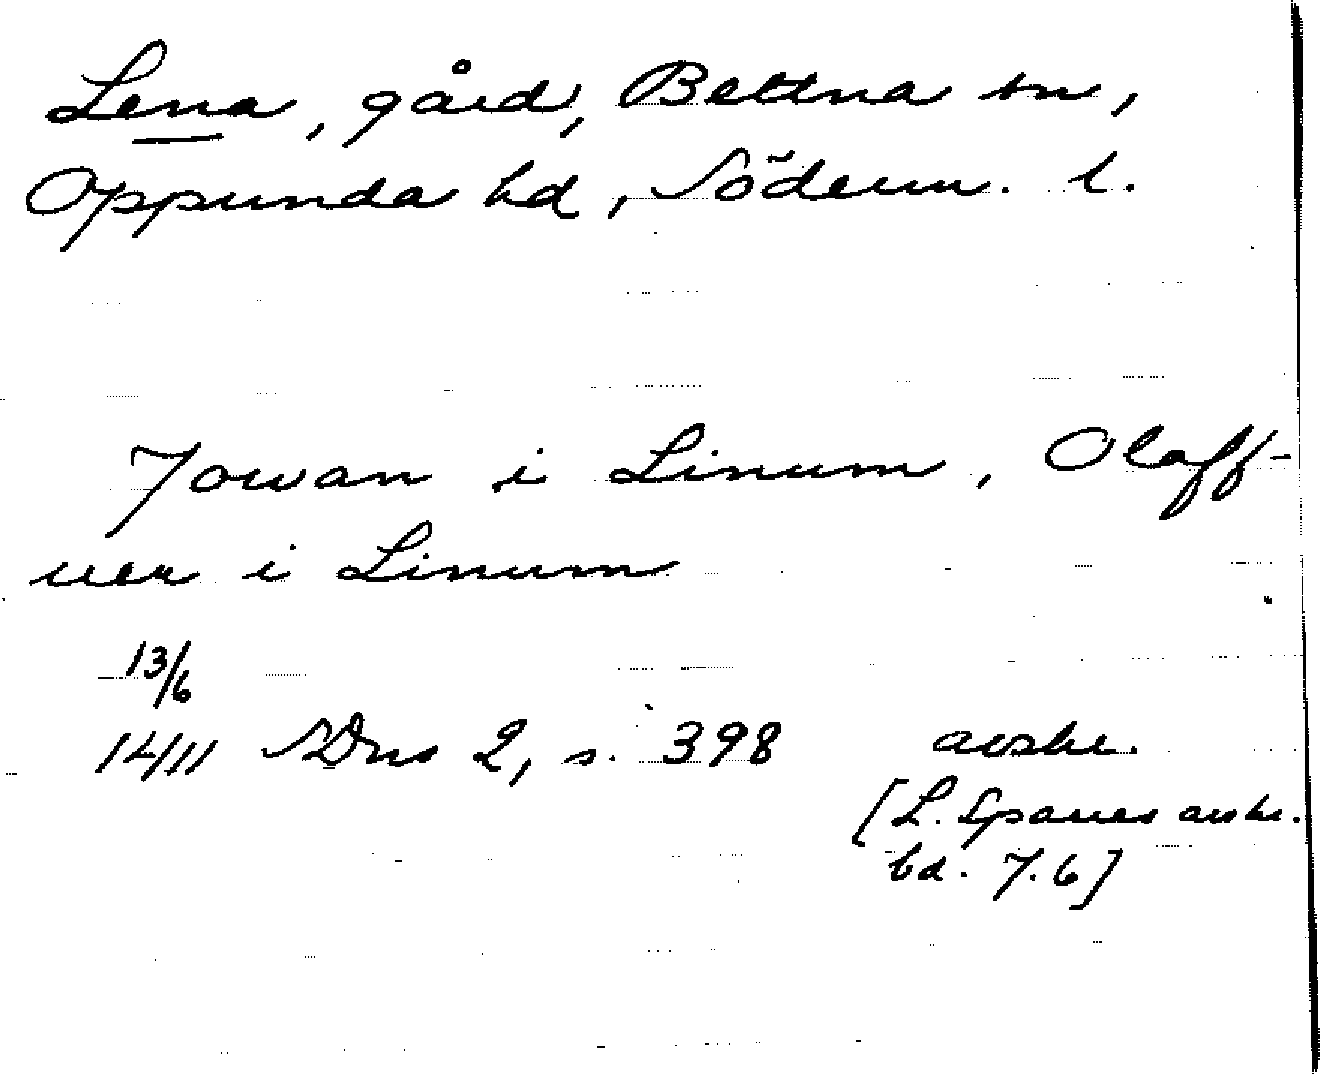 Lena, gård, Bettna sn,
Oppunda hd, Söderm. l.
Jowan i Linum, Olaff-
uer i Linum
13/6
1411 SDns 2, s. 398 avskr.
[L. Sparres avskr.
bd. 7.6]